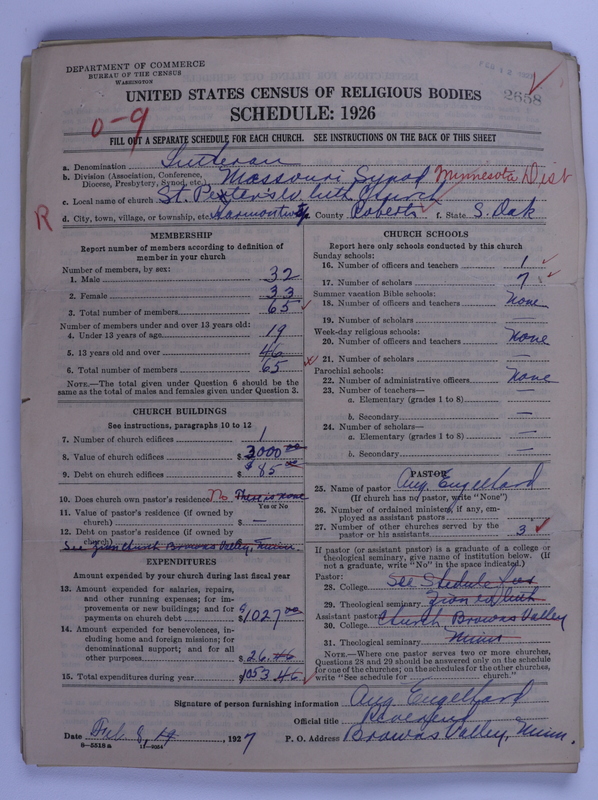 DEPARTMENT OF COMMERCE
BUREAU OF THE CENSUS
WASHINGTON
2658
UNITED STATES CENSUS OF RELIGIOUS BODIES
SCHEDULE: 1926
0-9
FILL OUT A SEPARATE SCHEDULE FOR EACH CHURCH. SEE INSTRUCTIONS ON THE BACK OF THIS SHEET
a. Denomination Lutheran
b. Division (Association, Conference, Diocese, Presbytery, Synod, etc.) Missouri Synod Minnesota Dist
c. Local name of church St. Peter's Ev. Luth Church
R
d. City, town, village, or township, etc. County Roberts f. State S. Dak
MEMBERSHIP
Report number of members according to definition of
member in your church
Number of members, by sex:
1. Male 32
2. Female 33
3. Total number of members 65
Number of members under and over 13 years old:
4. Under 13 years of age 19
5. 13 years old and over 46
6. Total number of members 65
NOTE.—The total given under Question 6 should be the
same as the total of males and females given under Question 3.
CHURCH BUILDINGS
See instructions, paragraphs 10 to 12
7. Number of church edifices 1
8. Value of church edifices $3000.00
9. Debt on church edifices $85.00
10. Does church own pastor's residence? No There is none
Yes or No
11. Value of pastor's residence (if owned by
church) $ —
12. Debt on pastor's residence (if owned by
church)
See Zion Church Browns Valley, Minn.
EXPENDITURES
Amount expended by your church during last fiscal year
13. Amount expended for salaries, repairs,
and other running expenses; for im-
provements or new buildings; and for
payments on church debt $1027.00
14. Amount expended for benevolences, in-
cluding home and foreign missions; for
denominational support; and for all
other purposes $26.46
15. Total expenditures during year $1053.46
CHURCH SCHOOLS
Report here only schools conducted by this church
Sunday schools:
16. Number of officers and teachers 1
17. Number of scholars 7
Summer vacation Bible schools:
18. Number of officers and teachers None
19. Number of scholars —
Week-day religious schools:
20. Number of officers and teachers None
21. Number of scholars —
Parochial schools:
22. Number of administrative officers None
23. Number of teachers—
a. Elementary (grades 1 to 8) —
b. Secondary —
24. Number of scholars—
a. Elementary (grades 1 to 8) —
b. Secondary —
PASTOR
25. Name of pastor Aug. Engelhard
(If church has no pastor, write "None")
26. Number of ordained ministers, if any, em-
ployed as assistant pastors
27. Number of other churches served by the
pastor or his assistants 3
If pastor (or assistant pastor) is a graduate of a college or
theological seminary, give name of institution below. (If
not a graduate, write "No" in the space indicated.)
Pastor:
28. College See Schedule for
29. Theological seminary Zion Ev Luth
Assistant pastor:
30. College Church Browns Valley
31. Theological seminary Minn
NOTE.—Where one pastor serves two or more churches,
Questions 28 and 29 should be answered only on the schedule
for one of the churches; on the schedules for the other churches,
write "See schedule for church."
Signature of person furnishing information Aug. Engelhard
Official title Reverend
Date Feb 8, 19 , 1927 P. O. Address Browns Valley, Minn.
8-5518a 11-9254